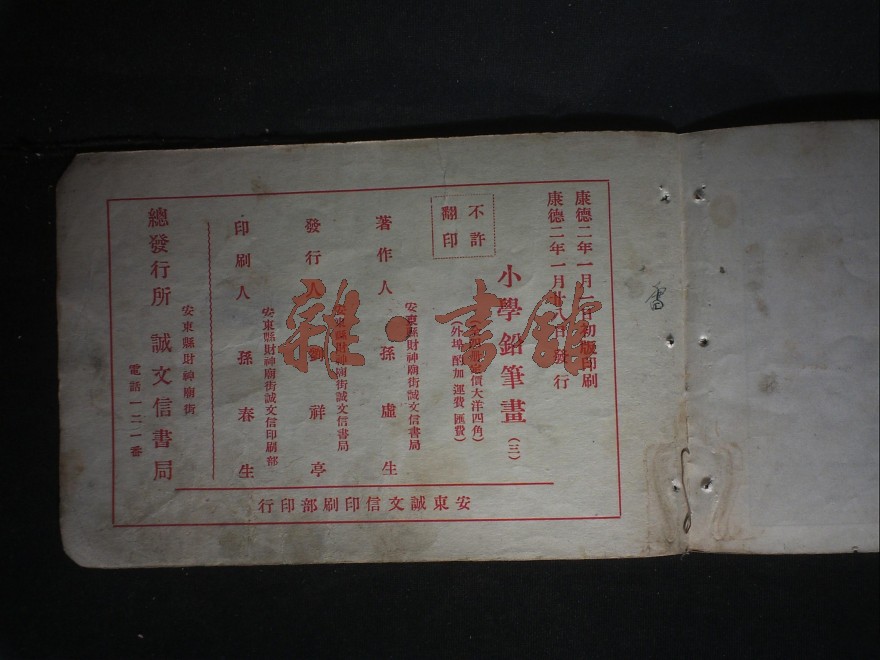 康德二年一月 日初版印刷
康德二年一月廿八日發行
不許
翻印
小學鉛筆畫(三)
定價大洋四角)
外埠酌加運費匯費)
安東縣財神廟街誠文信書局
著作人 孫虛生
安東縣財神廟街誠文信書局
發行人 劉祥亭
安東縣財神廟街誠文信印刷部
印刷人 孫春生
安東縣財神廟街
總發行所 誠文信書局
電話一二一番
安東誠文信印刷部印行
雜·書館